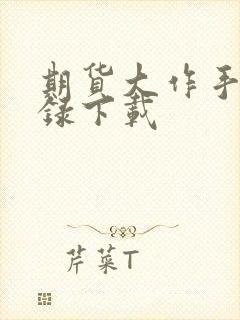 期货大作手
录下载
芹菜T